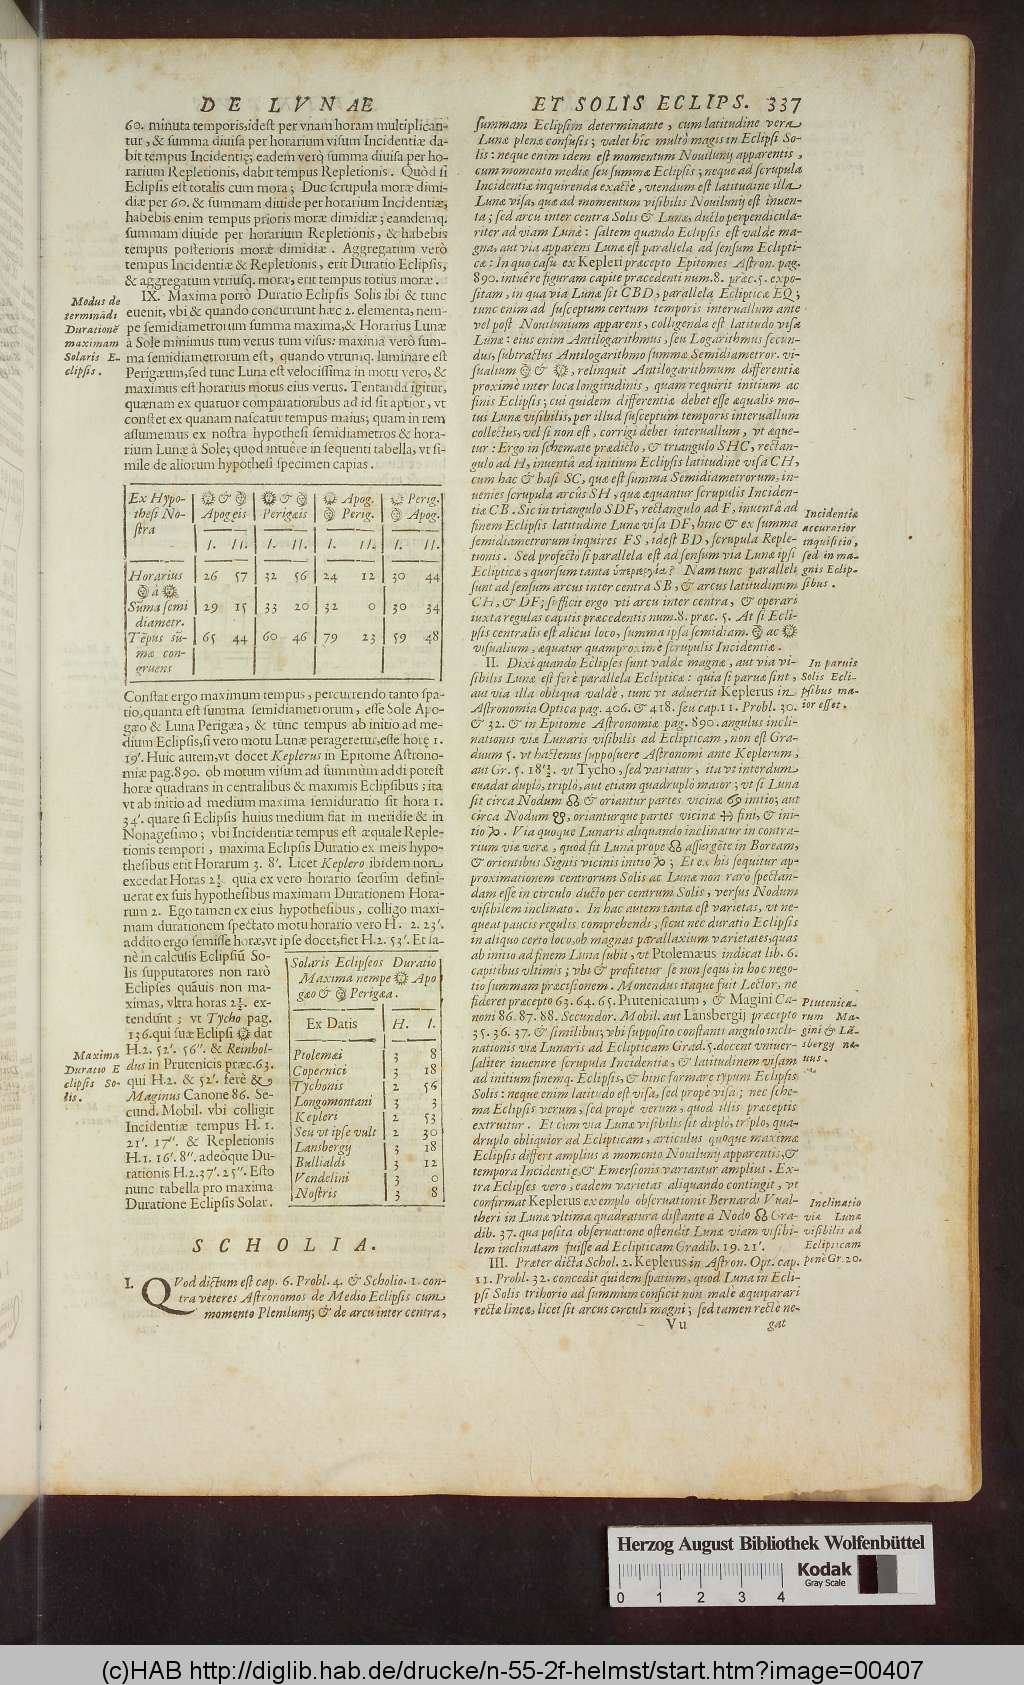 DE LVNAE
60. minuta temporis, idest per vnam horam multiplican-
tur, & summa diuisa per horarium visum Incidentiæ da-
bit tempus Incidentię; eadem verò summa diuisa per ho-
rarium Repletionis, dabit tempus Repletionis. Quòd si
Eclipsis est totalis cum mora; Duc scrupula moræ dimi-
diæ per 60. & summam diuide per horarium Incidentiæ,
habebis enim tempus prioris moræ dimidiæ; eamdemq.
summam diuide per horarium Repletionis, & habebis
tempus posterioris moræ dimidiæ. Aggregatum verò
tempus Incidentiæ & Repletionis, erit Duratio Eclipsis,
& aggregatum vtriusq. moræ, erit tempus totius moræ.
Modus de
terminãdi
Durationẽ
maximam
Solaris E-
clipsis.
IX. Maxima porrò Duratio Eclipsis Solis ibi & tunc
euenit, vbi & quando concurrunt hæc 2. elementa, nem-
pe semidiametrorum summa maxima, & Horarius Lunæ
à Sole minimus tum verus tum visus: maxima verò sum-
ma semidiametrorum est, quando vtrumq. luminare est
Perigæum, sed tunc Luna est velocissima in motu vero, &
maximus est horarius motus eius verus. Tentanda igitur,
quænam ex quatuor comparationibus ad id sit aptior, vt
constet ex quanam nascatur tempus maius; quam in rem
assumemus ex nostra hypothesi semidiametros & hora-
rium Lunæ à Sole; quod intuêre in sequenti tabella, vt si-
mile de aliorum hypothesi specimen capias.
Ex Hypo- | ☉ & ☽ | ☉ & ☽ | ☉ Apog. | ☉ Perig.
thesi No- | Apogeis | Perigæis | ☽ Perig. | ☽ Apog.
stra
I. II. | I. II. | I. II. | I. II.
Horarius | 26 57 | 32 56 | 24 12 | 30 44
☽ à ☉
Sũma semi | 29 15 | 33 20 | 32 0 | 30 34
diametr.
Tẽpus sũ- | 65 44 | 60 46 | 79 23 | 59 48
mæ con-
gruens
Constat ergo maximum tempus, percurrendo tanto spa-
tio, quanta est summa semidiametrorum, esse Sole Apo-
gæo & Luna Perigæa, & tunc tempus ab initio ad me-
dium Eclipsis, si vero motu Lunæ perageretur, esse horę 1.
19'. Huic autem, vt docet Keplerus in Epitome Astrono-
miæ pag. 890. ob motum visum ad summùm addi potest
horæ quadrans in centralibus & maximis Eclipsibus; ita
vt ab initio ad medium maxima semiduratio sit hora 1.
34'. quare si Eclipsis huius medium fiat in meridie & in
Nonagesimo; vbi Incidentiæ tempus est æquale Reple-
tionis tempori, maxima Eclipsis Duratio ex meis hypo-
thesibus erit Horarum 3. 8'. Licet Keplero ibidem non
excedat Horas 2½. quia ex vero horario seorsim defini-
uerat ex suis hypothesibus maximam Durationem Hora-
rum 2. Ego tamen ex eius hypothesibus, colligo maxi-
mam durationem spectato motu horario vero H. 2. 23'.
addito ergo semisse horæ, vt ipse docet, fiet H. 2. 53'. Et sa-
nè in calculis Eclipsiũ So-
lis supputatores non rarò
Eclipses quãuis non ma-
ximas, vltra horas 2½. ex-
tendũnt; vt Tycho pag.
136. qui suæ Eclipsi ☉ dat
H. 2. 52'. 56". & Reinhol-
dus in Prutenicis præc. 63.
qui H. 2. & 52'. ferè &
Maginus Canone 86. Se-
cund. Mobil. vbi colligit
Incidentiæ tempus H. 1.
21'. 17". & Repletionis
H. 1. 16'. 8". adeóque Du-
rationis H. 2. 37'. 25". Esto
nunc tabella pro maxima
Duratione Eclipsis Solar.
Maxima
Duratio E
clipsis So-
lis.
Solaris Eclipseos Duratio
Maxima nempe ☉ Apo
gæo & ☽ Perigæa.
Ex Datis | H. I.
Ptolemæi | 3 8
Copernici | 3 18
Tychonis | 2 56
Longomontani | 3 3
Kepleri | 2 53
Seu vt ipse vult | 2 30
Lansbergy | 3 18
Bullialdi | 3 12
Vendelini | 3 0
Nostris | 3 8
SCHOLIA.
I. QVod dictum est cap. 6. Probl. 4. & Scholio. 1. con-
tra veteres Astronomos de Medio Eclipsis cum
momento Plenilunij; & de arcu inter centra,
ET SOLIS ECLIPS. 337
summam Eclipsim determinante, cum latitudine vera
Lunæ plenæ confusis; valet hîc multò magis in Eclipsi So-
lis: neque enim idem est momentum Nouilunij apparentis,
cum momento mediæ seu summæ Eclipsis; neque ad scrupula
Incidentiæ inquirenda exactè, vtendum est latitudine illa
Lunæ visa, quæ ad momentum visibilis Nouilunij est inuen-
ta; sed arcu inter centra Solis & Lunæ, ducto perpendicula-
riter ad viam Lunæ: saltem quando Eclipsis est valde ma-
gna, aut via apparens Lunæ est parallela ad sensum Eclipti-
cæ: In quo casu ex Kepleri præcepto Epitomes Astron. pag.
890. intuêre figuram capite præcedenti num. 8. præc. 5. expo-
sitam, in qua via Lunæ sit CBD, parallela Eclipticæ EQ;
tunc enim ad susceptum certum temporis interuallum ante
vel post Nouilunium apparens, colligenda est latitudo visa
Lunæ: eius enim Antilogarithmus, seu Logarithmus secun-
dus, subtractus Antilogarithmo summæ Semidiametror. vi-
sualium ☽ & ☉, relinquit Antilogarithmum differentiæ
proximè inter loca longitudinis, quam requirit initium ac
finis Eclipsis; cui quidem differentiæ debet esse æqualis mo-
tus Lunæ visibilis, per illud susceptum temporis interuallum
collectus, vel si non est, corrigi debet interuallum, vt æque-
tur: Ergo in schemate prædicto, & triangulo SHC, rectan-
gulo ad H, inuentâ ad initium Eclipsis latitudine visa CH,
cum hac & basi SC, quæ est summa Semidiametrorum, in-
uenies scrupula arcûs SH, quæ æquantur scrupulis Inciden-
tiæ CB. Sic in triangulo SDF, rectangulo ad F, inuentâ ad
finem Eclipsis latitudine Lunæ visa DF, hinc & ex summa
semidiametrorum inquires FS, idest BD, scrupula Reple-
tionis. Sed profectò si parallela est ad sensum via Lunæ ipsi
Eclipticæ, quorsum tanta ὑπεραεργία? Nam tunc paralleli
sunt ad sensum arcus inter centra SB, & arcus latitudinum
CH, & DF; sufficit ergo vti arcu inter centra, & operari
iuxta regulas capitis præcedentis num. 8. præc. 5. At si Ecli-
psis centralis est alicui loco, summa ipsa semidiam. ☽ ac ☉
visualium, æquatur quamproximè scrupulis Incidentiæ.
Incidentiæ
accuratior
inquisitio,
sed in ma-
gnis Eclip-
sibus.
II. Dixi quando Eclipses sunt valde magnæ, aut via vi-
sibilis Lunæ est ferè parallela Eclipticæ: quia si paruæ sint,
aut via illa obliqua valde, tunc vt aduertit Keplerus in
Astronomia Optica pag. 406. & 418. seu cap. 11. Probl. 30.
& 32. & in Epitome Astronomiæ pag. 890. angulus incli-
nationis viæ Lunaris visibilis ad Eclipticam, non est Gra-
duum 5. vt hactenus supposuere Astronomi ante Keplerum,
aut Gr. 5. 18'½. vt Tycho, sed variatur, ita vt interdum
euadat duplò, triplò, aut etiam quadruplò maior; vt si Luna
sit circa Nodum ☊ & oriantur partes vicinæ ♋ initio; aut
circa Nodum ☋, orianturque partes vicinæ ♐ fini, & ini-
tio ♑. Via quoque Lunaris aliquando inclinatur in contra-
rium viæ veræ, quod sit Lunâ prope ☊ assurgẽte in Boream,
& orientibus Signis vicinis initio ♑; Et ex his sequitur ap-
proximationem centrorum Solis ac Lunæ non rarò spectan-
dam esse in circulo ducto per centrum Solis, versus Nodum
visibilem inclinato. In hac autem tanta est varietas, vt ne-
queat paucis regulis comprehendi, sicut nec duratio Eclipsis
in aliquo certo loco, ob magnas parallaxium varietates, quas
ab initio ad finem Luna subit, vt Ptolemæus indicat lib. 6.
capitibus vltimis; vbi & profitetur se non sequi in hoc nego-
tio summam præcisionem. Monendus itaque fuit Lector, ne
fideret præcepto 63. 64. 65. Prutenicarum, & Magini Ca-
noni 86. 87. 88. Secundor. Mobil. aut Lansbergij præcepto
35. 36. 37. & similibus; vbi supposito constanti angulo incli-
nationis viæ Lunaris ad Eclipticam Grad. 5. docent vniuer-
saliter inuenire scrupula Incidentiæ, & latitudinem visam
ad initium finemq. Eclipsis, & hinc formare typum Eclipsis
Solis: neque enim latitudo est visa, sed propè visa; nec sche-
ma Eclipsis verum, sed propè verum, quod illis præceptis
extruitur. Et cum via Lunæ visibilis sit duplò, triplò, qua-
druplò obliquior ad Eclipticam, articulus quoque maximæ
Eclipsis differt amplius à momento Nouilunij apparentis, &
tempora Incidentię, & Emersionis variantur amplius. Ex-
tra Eclipses vero, eadem varietas aliquando contingit, vt
confirmat Keplerus exemplo obseruationis Bernardi Vual-
theri in Lunæ vltima quadratura distante à Nodo ☊ Gra-
dib. 37. qua posita obseruatione ostendit Lunæ viam visibi-
lem inclinatam fuisse ad Eclipticam Gradib. 19. 21'.
In paruis
Solis Ecli-
psibus ma-
ior esset.
Prutenica-
rum Ma-
gini & Lã-
sbergy næ-
uus.
Inclinatio
viæ Lunæ
visibilis ad
Eclipticam
penè Gr. 20.
III. Præter dicta Schol. 2. Keplerus in Astron. Opt. cap.
11. Probl. 32. concedit quidem spatium, quod Luna in Ecli-
psi Solis trihorio ad summum conficit non malè æquiparari
rectæ lineæ, licet sit arcus circuli magni; sed tamen rectè ne-
Vu gat
Herzog August Bibliothek Wolfenbüttel
Kodak
Gray Scale
0 1 2 3 4
(c)HAB http://diglib.hab.de/drucke/n-55-2f-helmst/start.htm?image=00407